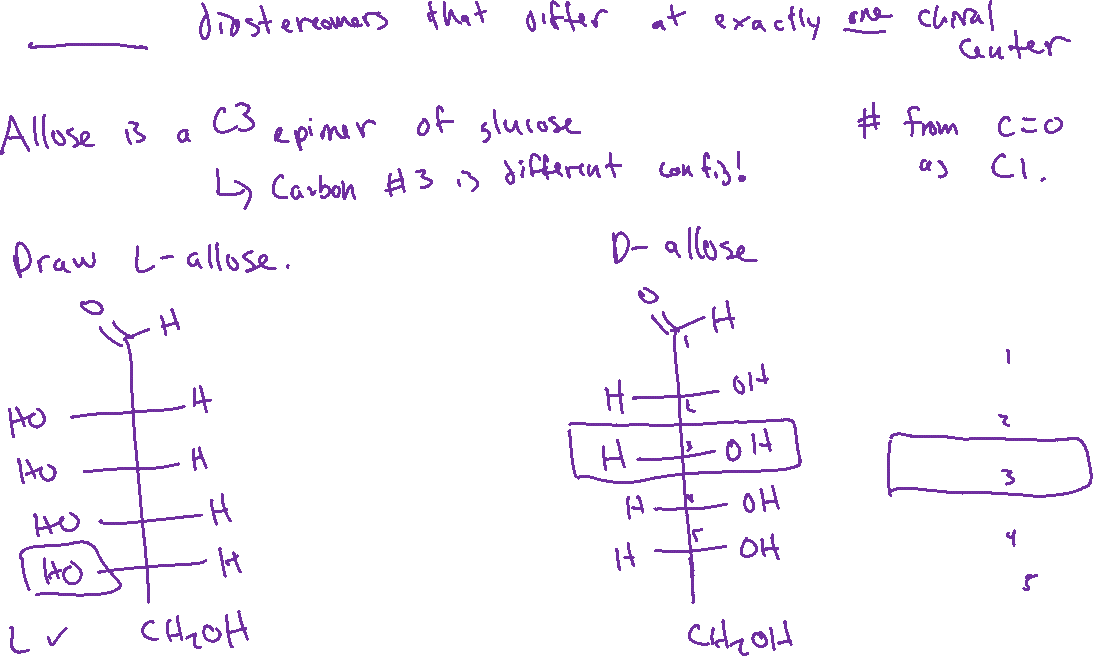 ______ diastereomers that differ at exactly one chiral
center
Allose is a C3 epimer of glucose
↳ Carbon #3 is different config!
# from C=O
as C1.
Draw L-allose.
D-allose
O H
HO H
HO H
HO H
HO H
CH2OH
L ✓
O H
1
H OH
2
H OH
3
H OH
4
H OH
5
CH2OH
1
2
3
4
5